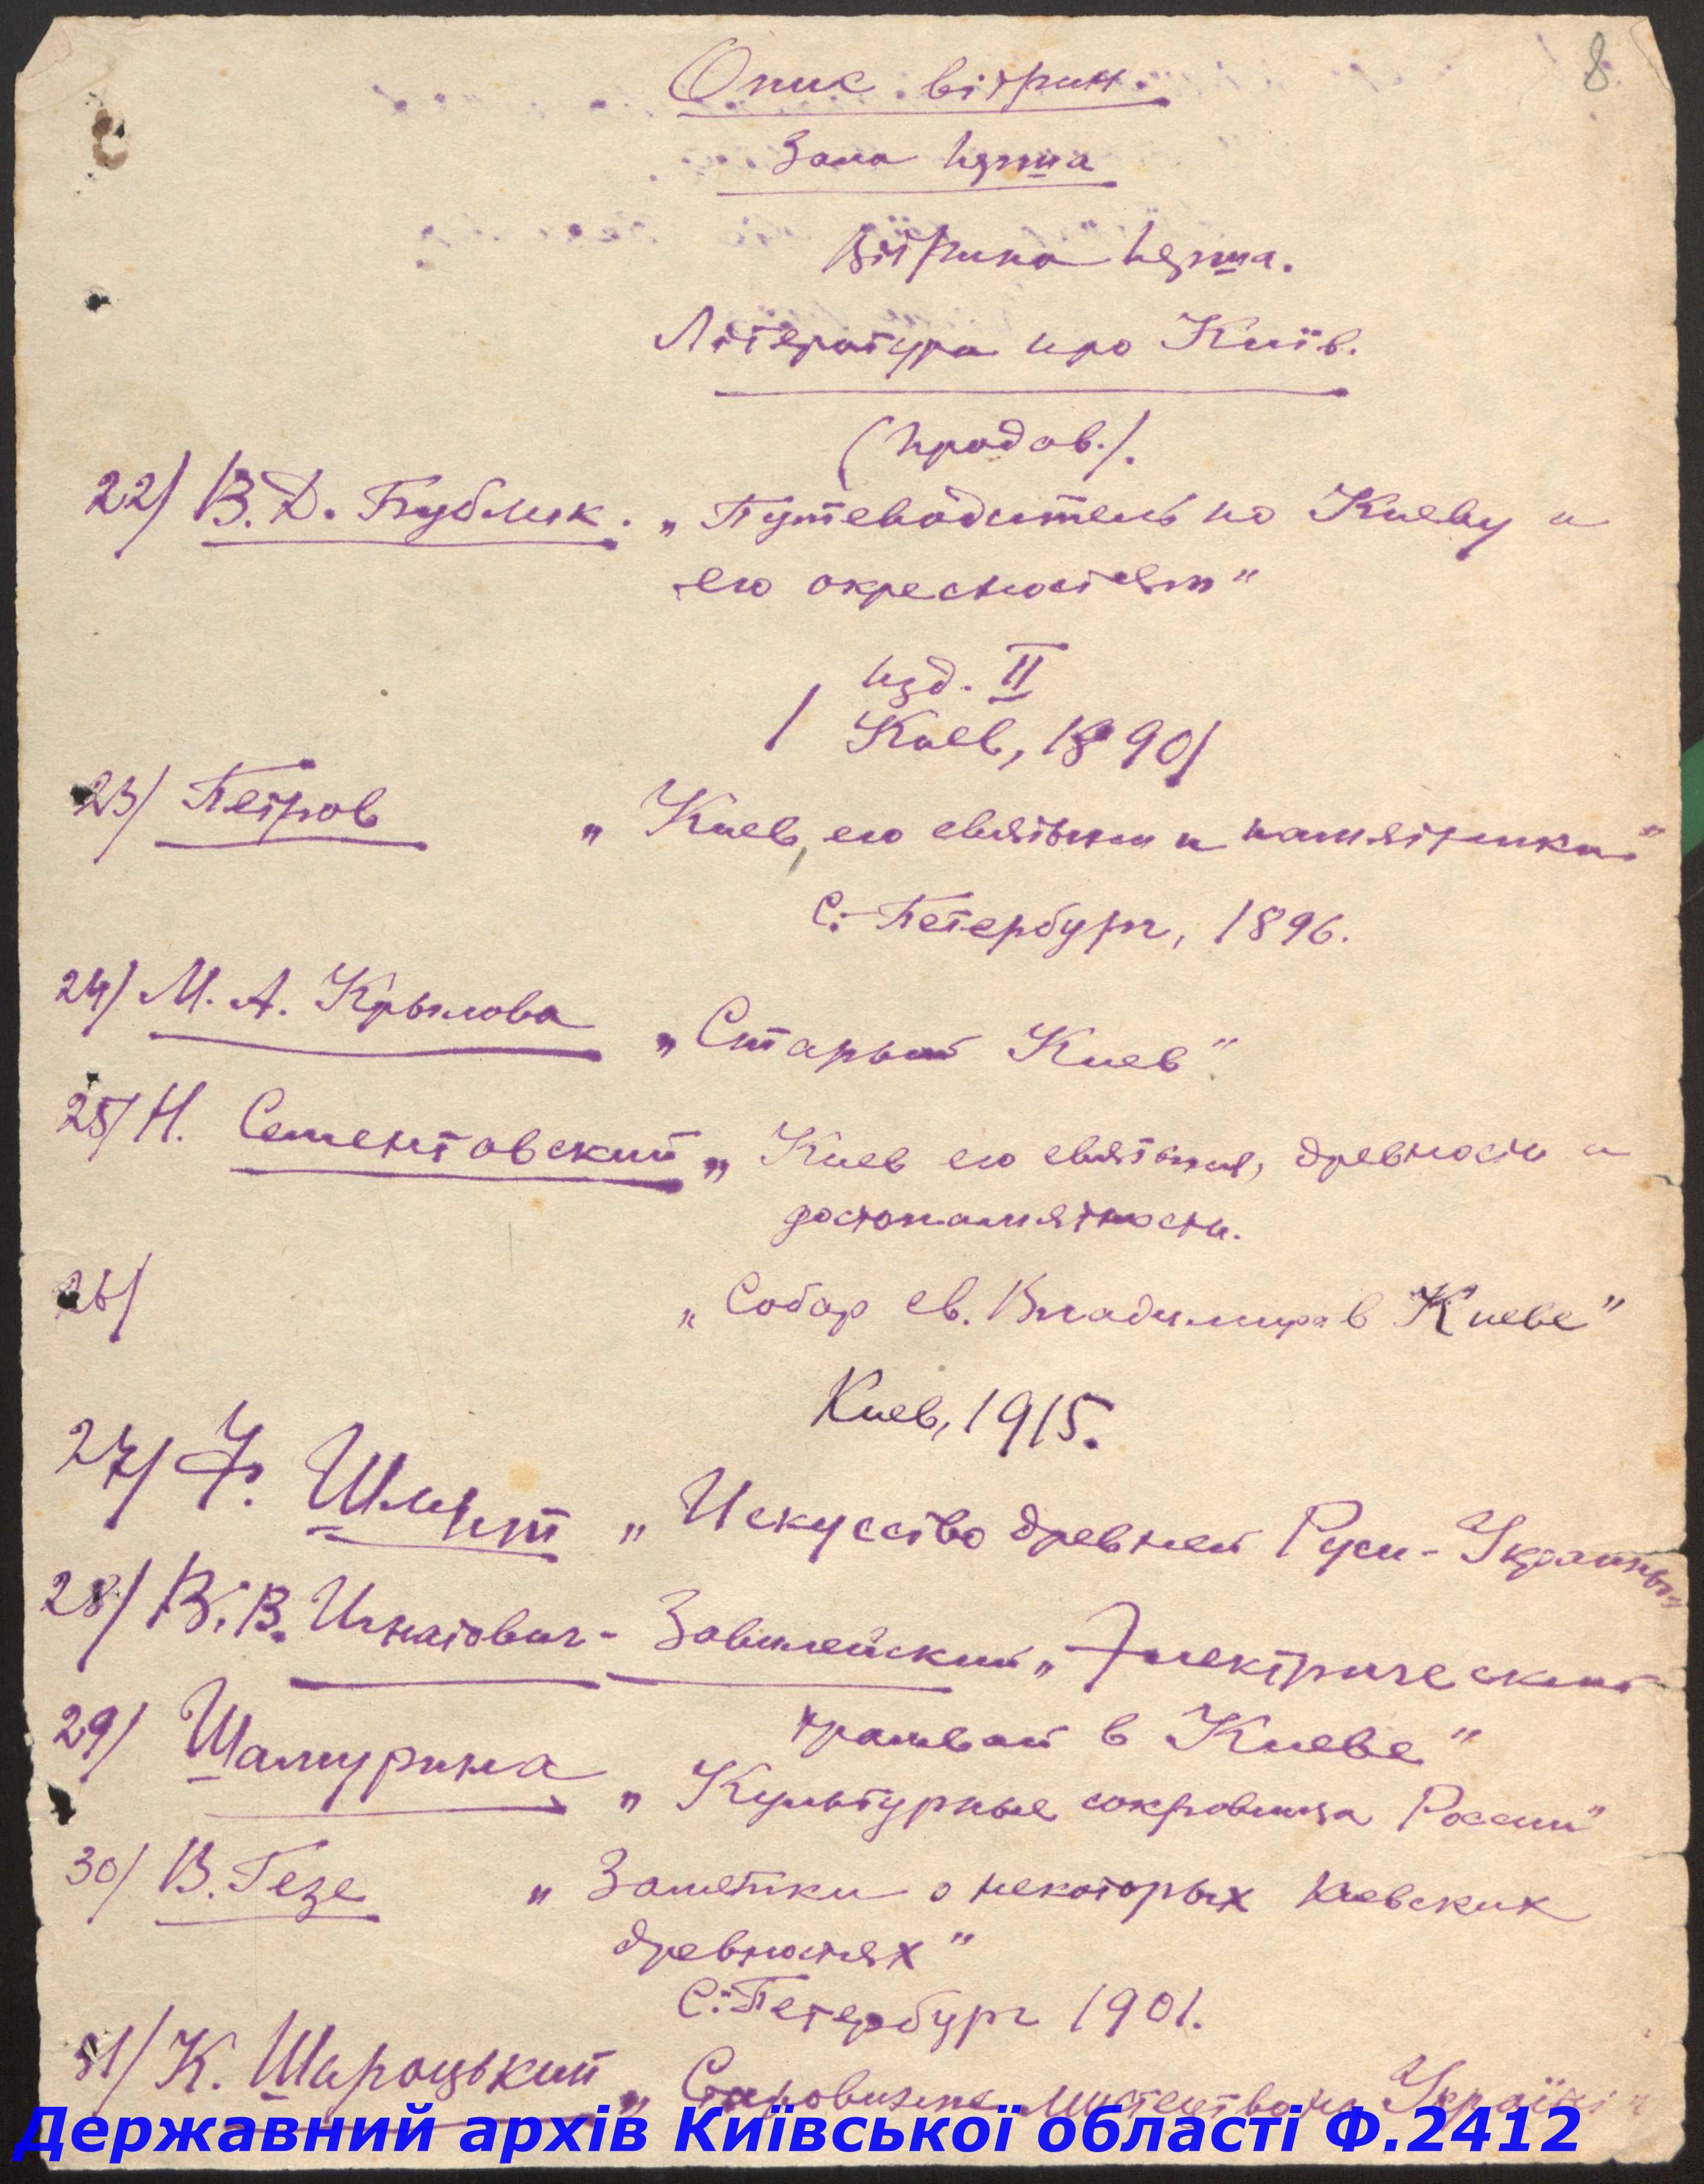 8
Опис вітрин.
Зала перша
Вітрина перша.
Література про Київ.
(продов.).
22/ В.Д. Бублик. „Путеводитель по Киеву и
его окресностям"
изд. II
/ Киев, 1890/
23/ Петров „Киев, его святыни и памятники"
С.-Петербург, 1896.
24/ М. А. Крылова „Старый Киев"
25/ Н. Сементовский „Киев его святыня, древности и
достопамятности.
26/ „Собор св. Владимира в Киеве"
Киев, 1915.
27/ Ф. Шмит „Искусство древней Руси-Украины"
28/ В.В. Игнатович-Завилейский „Электрический
трамвай в Киеве"
29/ Шамурина „Культурные сокровища России"
30/ В. Гезе „Заметки о некоторых киевских
древностях"
С.-Петербург 1901.
31/ К. Широцький „Старовинне мистецтво на Україні"
Державний архів Київської області Ф.2412